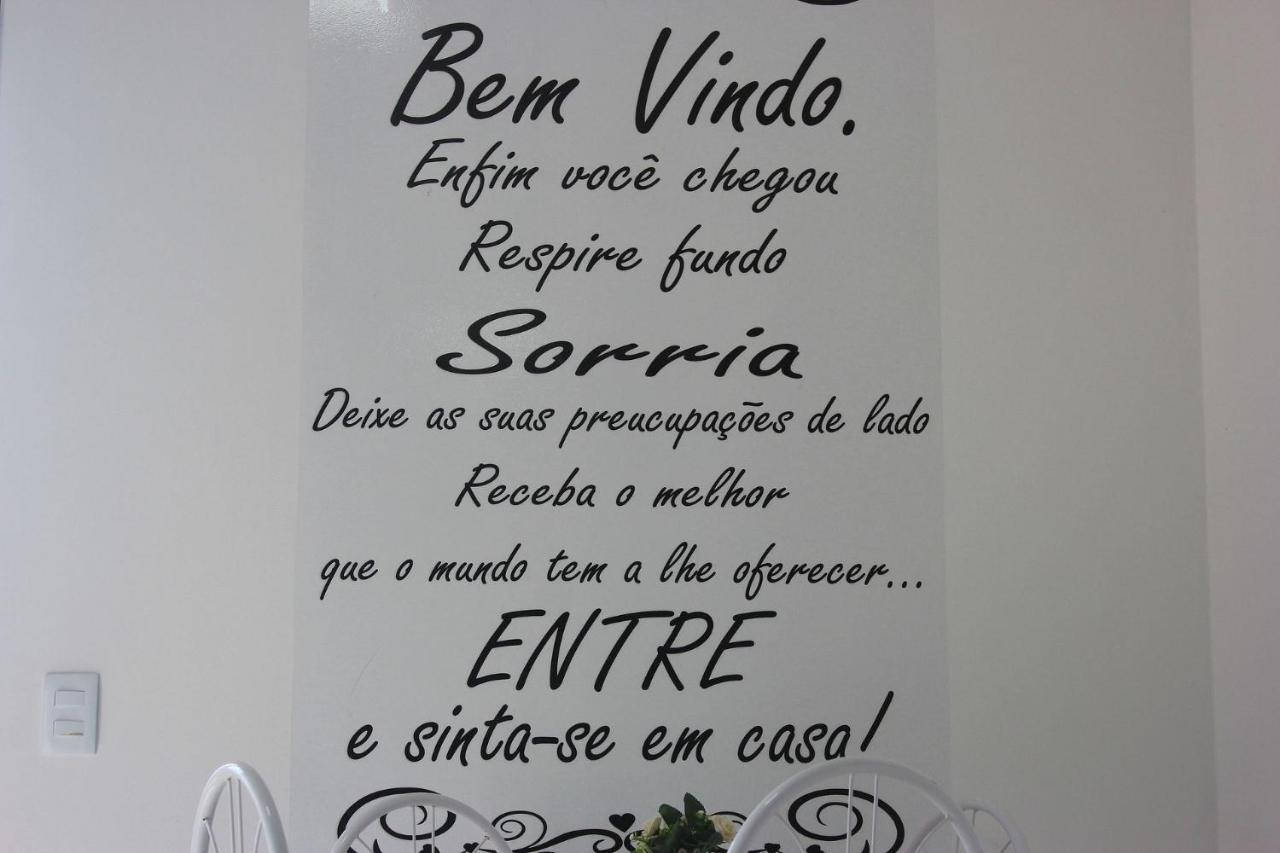 Bem Vindo.
Enfim você chegou
Respire fundo
Sorria
Deixe as suas preucupações de lado
Receba o melhor
que o mundo tem a lhe oferecer...
ENTRE
e sinta-se em casa!